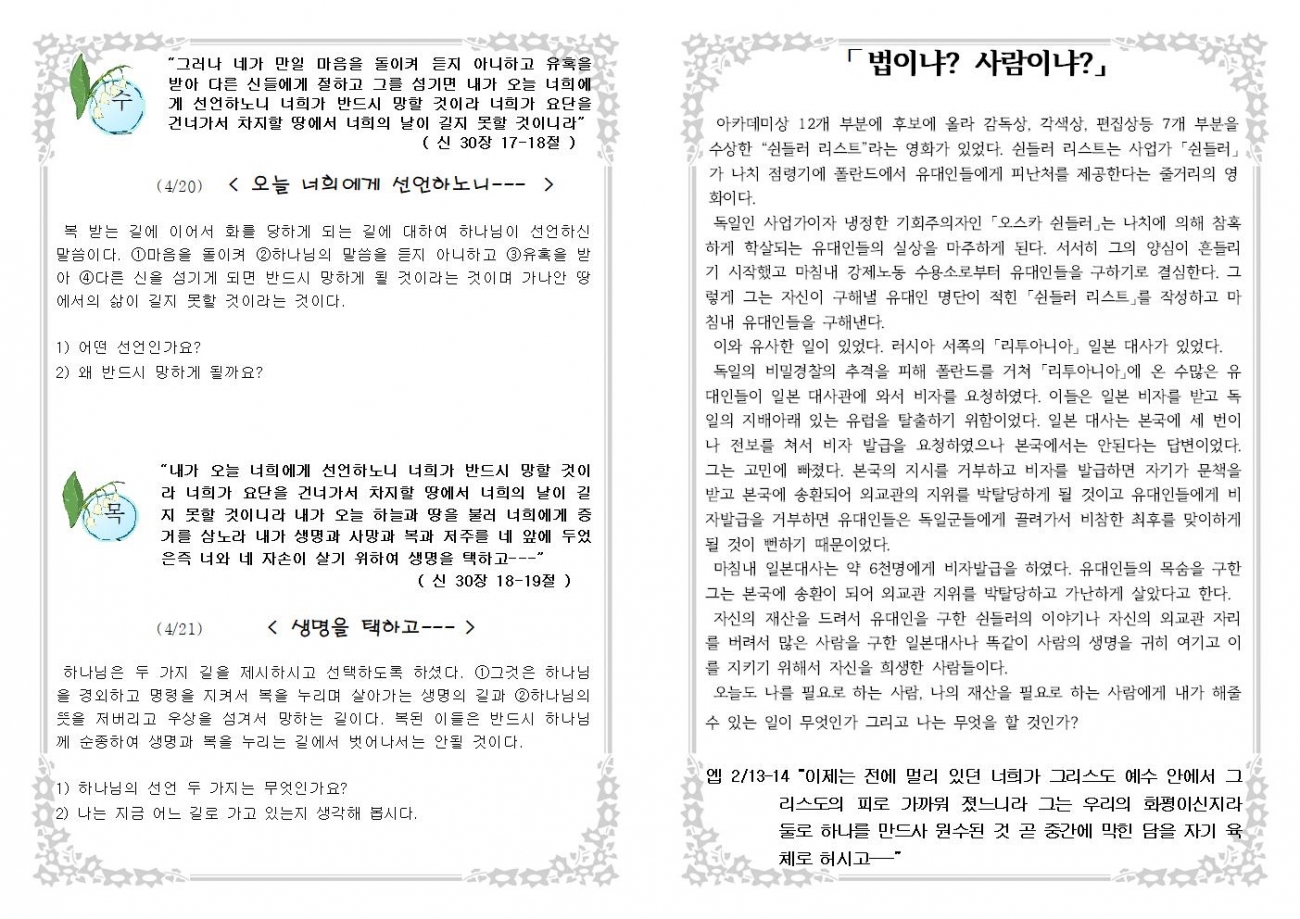 수
“그러나 네가 만일 마음을 돌이켜 듣지 아니하고 유혹을
받아 다른 신들에게 절하고 그를 섬기면 내가 오늘 너희에
게 선언하노니 너희가 반드시 망할 것이라 너희가 요단을
건너가서 차지할 땅에서 너희의 날이 길지 못할 것이니라”
( 신 30장 17-18절 )
(4/20) < 오늘 너희에게 선언하노니--- >
복 받는 길에 이어서 화를 당하게 되는 길에 대하여 하나님이 선언하신
말씀이다. ①마음을 돌이켜 ②하나님의 말씀을 듣지 아니하고 ③유혹을 받
아 ④다른 신을 섬기게 되면 반드시 망하게 될 것이라는 것이며 가나안 땅
에서의 삶이 길지 못할 것이라는 것이다.
1) 어떤 선언인가요?
2) 왜 반드시 망하게 될까요?
목
“내가 오늘 너희에게 선언하노니 너희가 반드시 망할 것이
라 너희가 요단을 건너가서 차지할 땅에서 너희의 날이 길
지 못할 것이니라 내가 오늘 하늘과 땅을 불러 너희에게 증
거를 삼노라 내가 생명과 사망과 복과 저주를 네 앞에 두었
은즉 너와 네 자손이 살기 위하여 생명을 택하고---”
( 신 30장 18-19절 )
(4/21) < 생명을 택하고--- >
하나님은 두 가지 길을 제시하시고 선택하도록 하셨다. ①그것은 하나님
을 경외하고 명령을 지켜서 복을 누리며 살아가는 생명의 길과 ②하나님의
뜻을 저버리고 우상을 섬겨서 망하는 길이다. 복된 이들은 반드시 하나님
께 순종하여 생명과 복을 누리는 길에서 벗어나서는 안될 것이다.
1) 하나님의 선언 두 가지는 무엇인가요?
2) 나는 지금 어느 길로 가고 있는지 생각해 봅시다.
「법이냐? 사람이냐?」
아카데미상 12개 부분에 후보에 올라 감독상, 각색상, 편집상등 7개 부분을
수상한 “쉰들러 리스트”라는 영화가 있었다. 쉰들러 리스트는 사업가 「쉰들러」
가 나치 점령기에 폴란드에서 유대인들에게 피난처를 제공한다는 줄거리의 영
화이다.
독일인 사업가이자 냉정한 기회주의자인 「오스카 쉰들러」는 나치에 의해 참혹
하게 학살되는 유대인들의 실상을 마주하게 된다. 서서히 그의 양심이 흔들리
기 시작했고 마침내 강제노동 수용소로부터 유대인들을 구하기로 결심한다. 그
렇게 그는 자신이 구해낼 유대인 명단이 적힌 「쉰들러 리스트」를 작성하고 마
침내 유대인들을 구해낸다.
이와 유사한 일이 있었다. 러시아 서쪽의 「리투아니아」 일본 대사가 있었다.
독일의 비밀경찰의 추격을 피해 폴란드를 거쳐 「리투아니아」에 온 수많은 유
대인들이 일본 대사관에 와서 비자를 요청하였다. 이들은 일본 비자를 받고 독
일의 지배아래 있는 유럽을 탈출하기 위함이었다. 일본 대사는 본국에 세 번이
나 전보를 쳐서 비자 발급을 요청하였으나 본국에서는 안된다는 답변이었다.
그는 고민에 빠졌다. 본국의 지시를 거부하고 비자를 발급하면 자기가 문책을
받고 본국에 송환되어 외교관의 지위를 박탈당하게 될 것이고 유대인들에게 비
자발급을 거부하면 유대인들은 독일군들에게 끌려가서 비참한 최후를 맞이하게
될 것이 뻔하기 때문이었다.
마침내 일본대사는 약 6천명에게 비자발급을 하였다. 유대인들의 목숨을 구한
그는 본국에 송환이 되어 외교관 지위를 박탈당하고 가난하게 살았다고 한다.
자신의 재산을 드려서 유대인을 구한 쉰들러의 이야기나 자신의 외교관 자리
를 버려서 많은 사람을 구한 일본대사나 똑같이 사람의 생명을 귀히 여기고 이
를 지키기 위해서 자신을 희생한 사람들이다.
오늘도 나를 필요로 하는 사람, 나의 재산을 필요로 하는 사람에게 내가 해줄
수 있는 일이 무엇인가 그리고 나는 무엇을 할 것인가?
엡 2/13-14 "이제는 전에 멀리 있던 너희가 그리스도 예수 안에서 그
리스도의 피로 가까워 졌느니라 그는 우리의 화평이신지라
둘로 하나를 만드사 원수된 것 곧 중간에 막힌 담을 자기 육
체로 허시고—-"